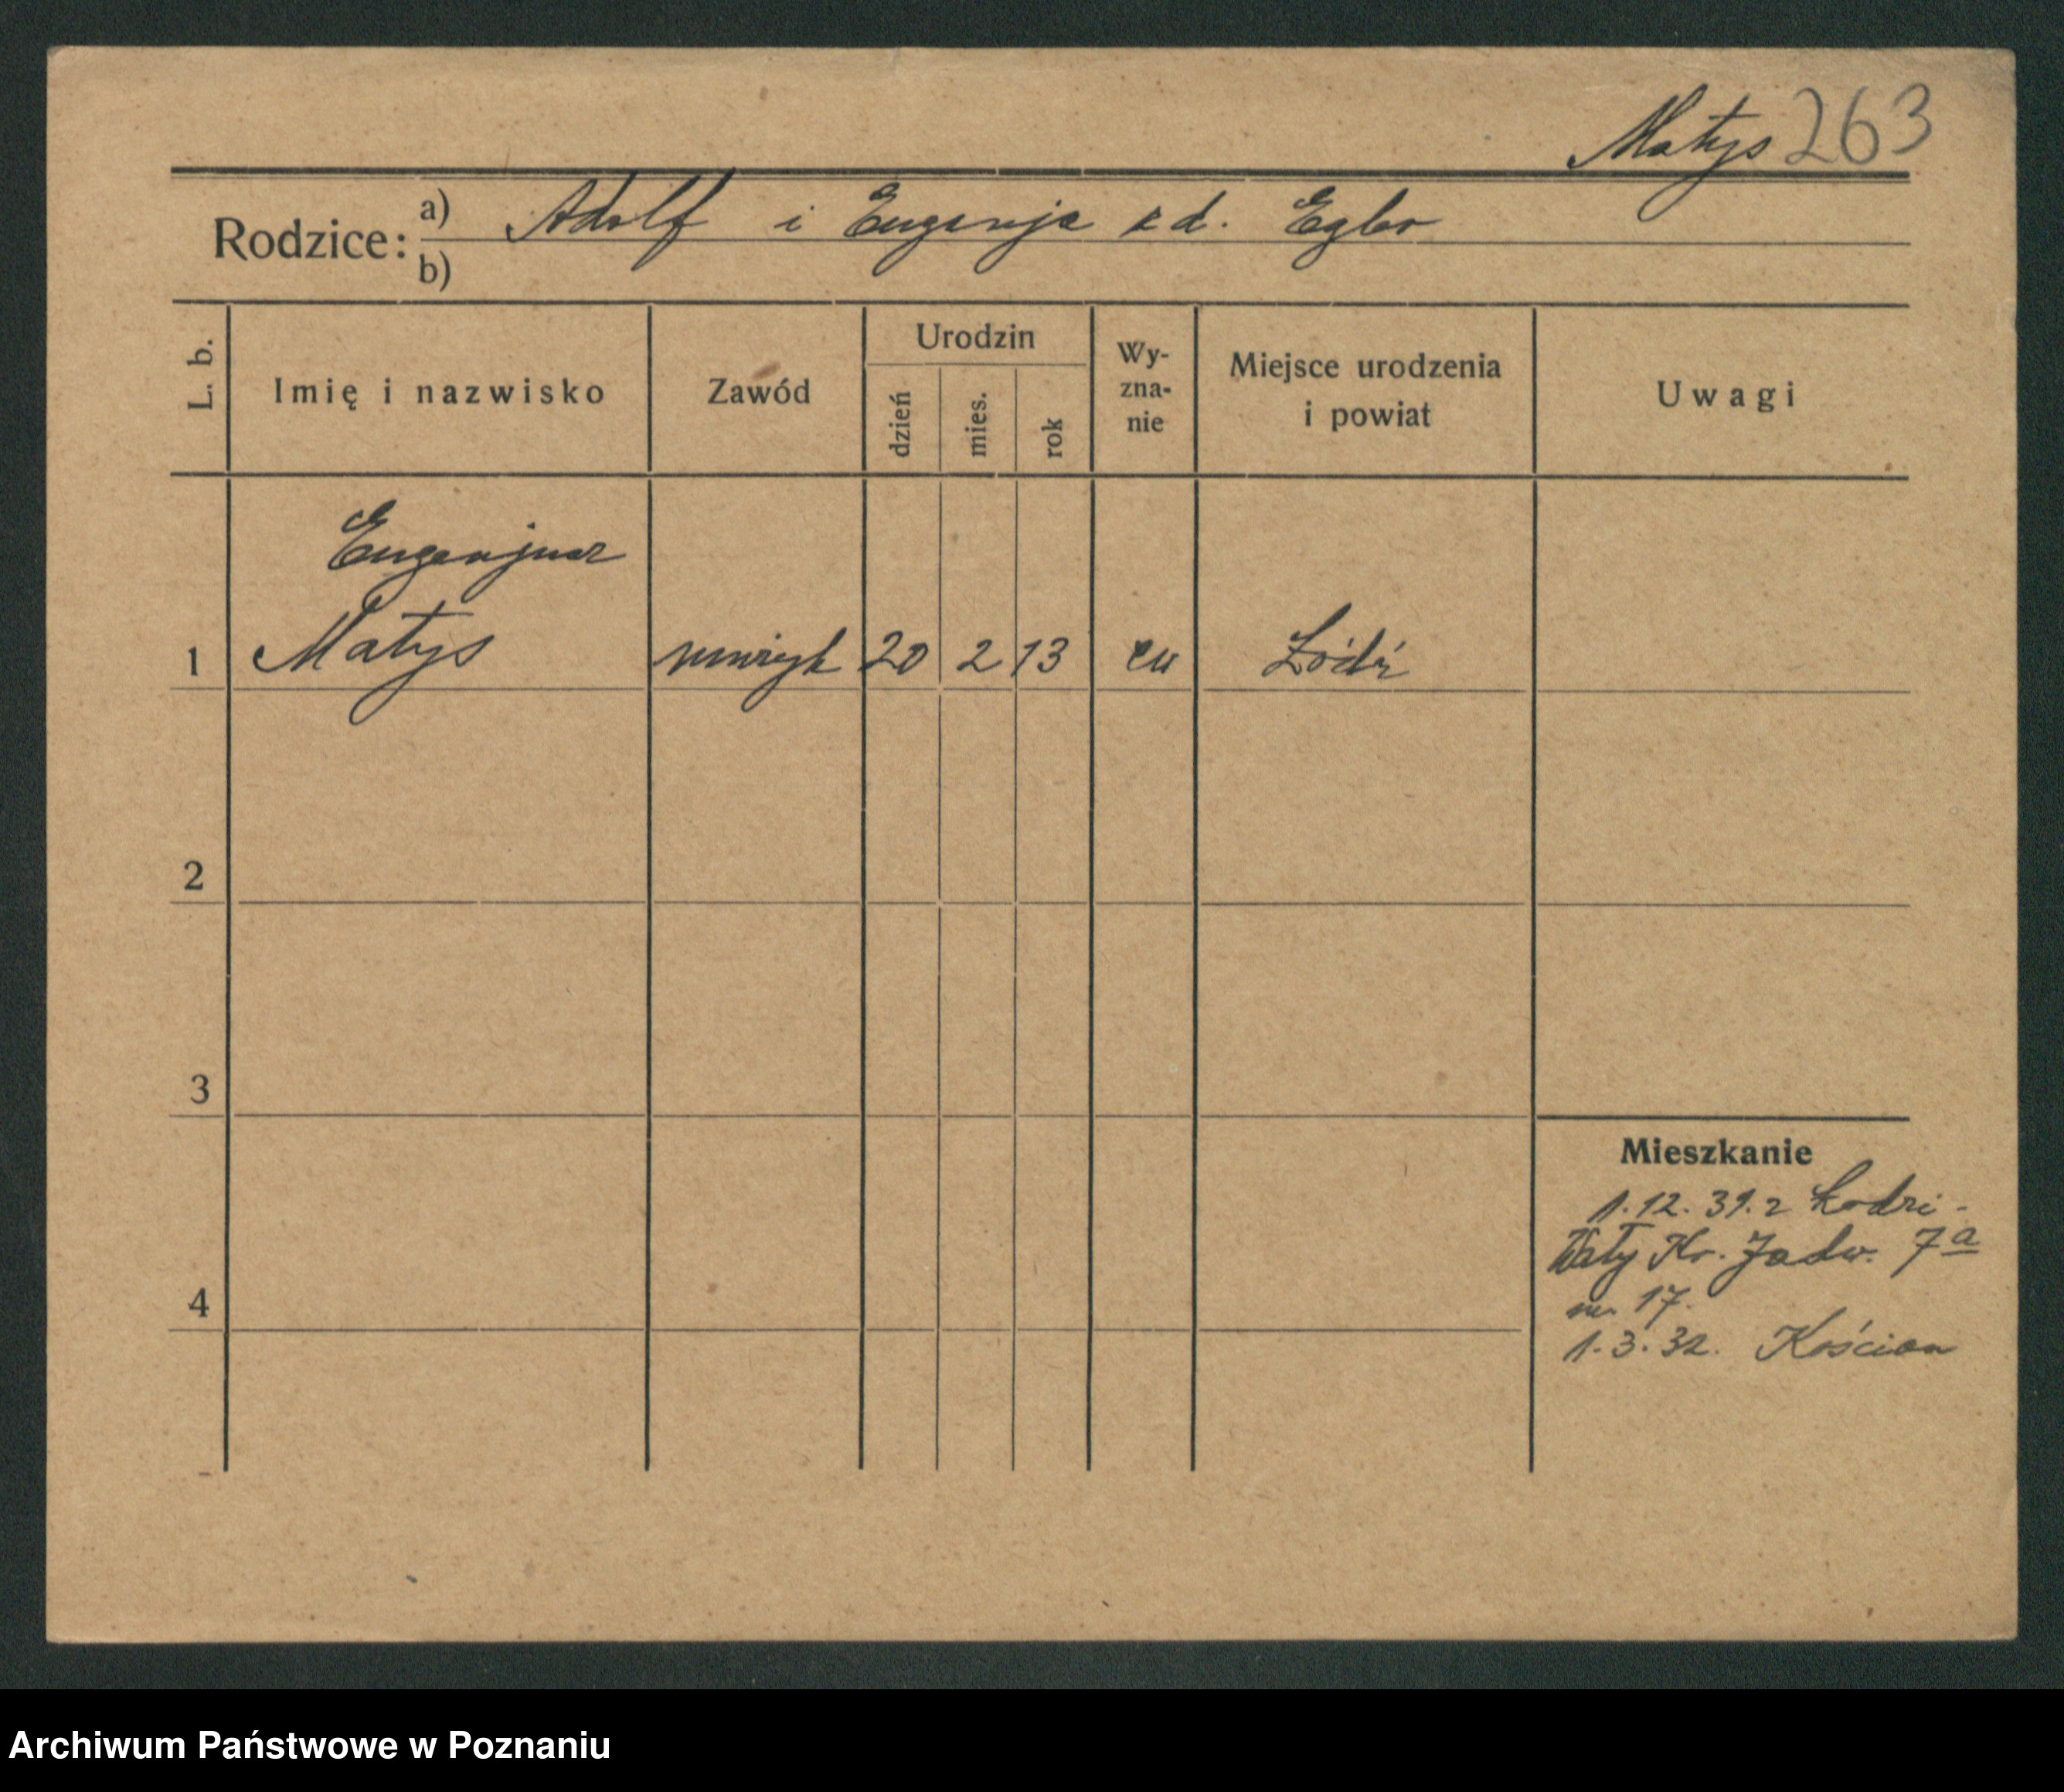 Matys 263
Rodzice:
a) Adolf i Eugenja z d. Egler
b)
L. b.
Imię i nazwisko
Zawód
Urodzin
dzień
mies.
rok
Wy-
zna-
nie
Miejsce urodzenia
i powiat
Uwagi
Eugenjusz
1 Matys muzyk 20 2 13 ew Łódź
2
3
4
Mieszkanie
1.12.31. z Łodzi -
Wały Kr. Jadw. 7a
m. 17.
1.3.32. Kościan
Archiwum Państwowe w Poznaniu